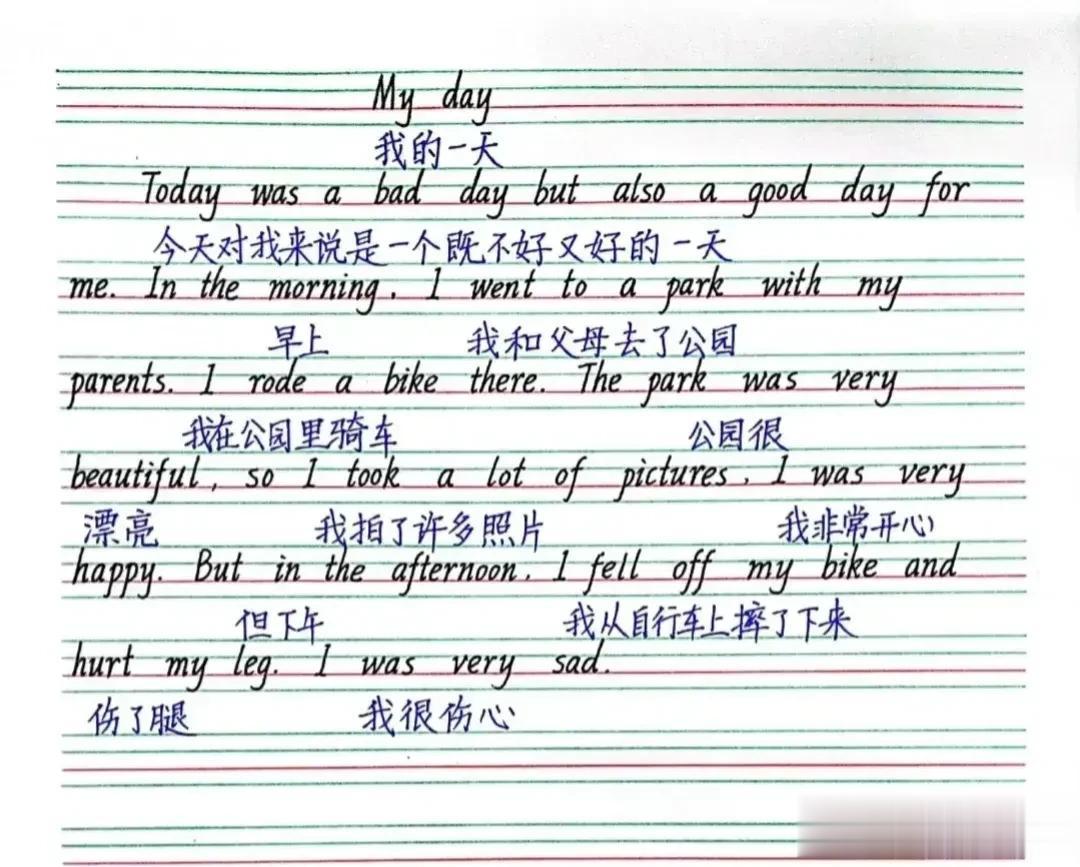 My day
我的一天
Today was a bad day but also a good day for
今天对我来说是一个既不好又好的一天
me. In the morning, I went to a park with my
早上 我和父母去了公园
parents. I rode a bike there. The park was very
我在公园里骑车 公园很
beautiful, so I took a lot of pictures. I was very
漂亮 我拍了许多照片 我非常开心
happy. But in the afternoon, I fell off my bike and
但下午 我从自行车上摔了下来
hurt my leg. I was very sad.
伤了腿 我很伤心